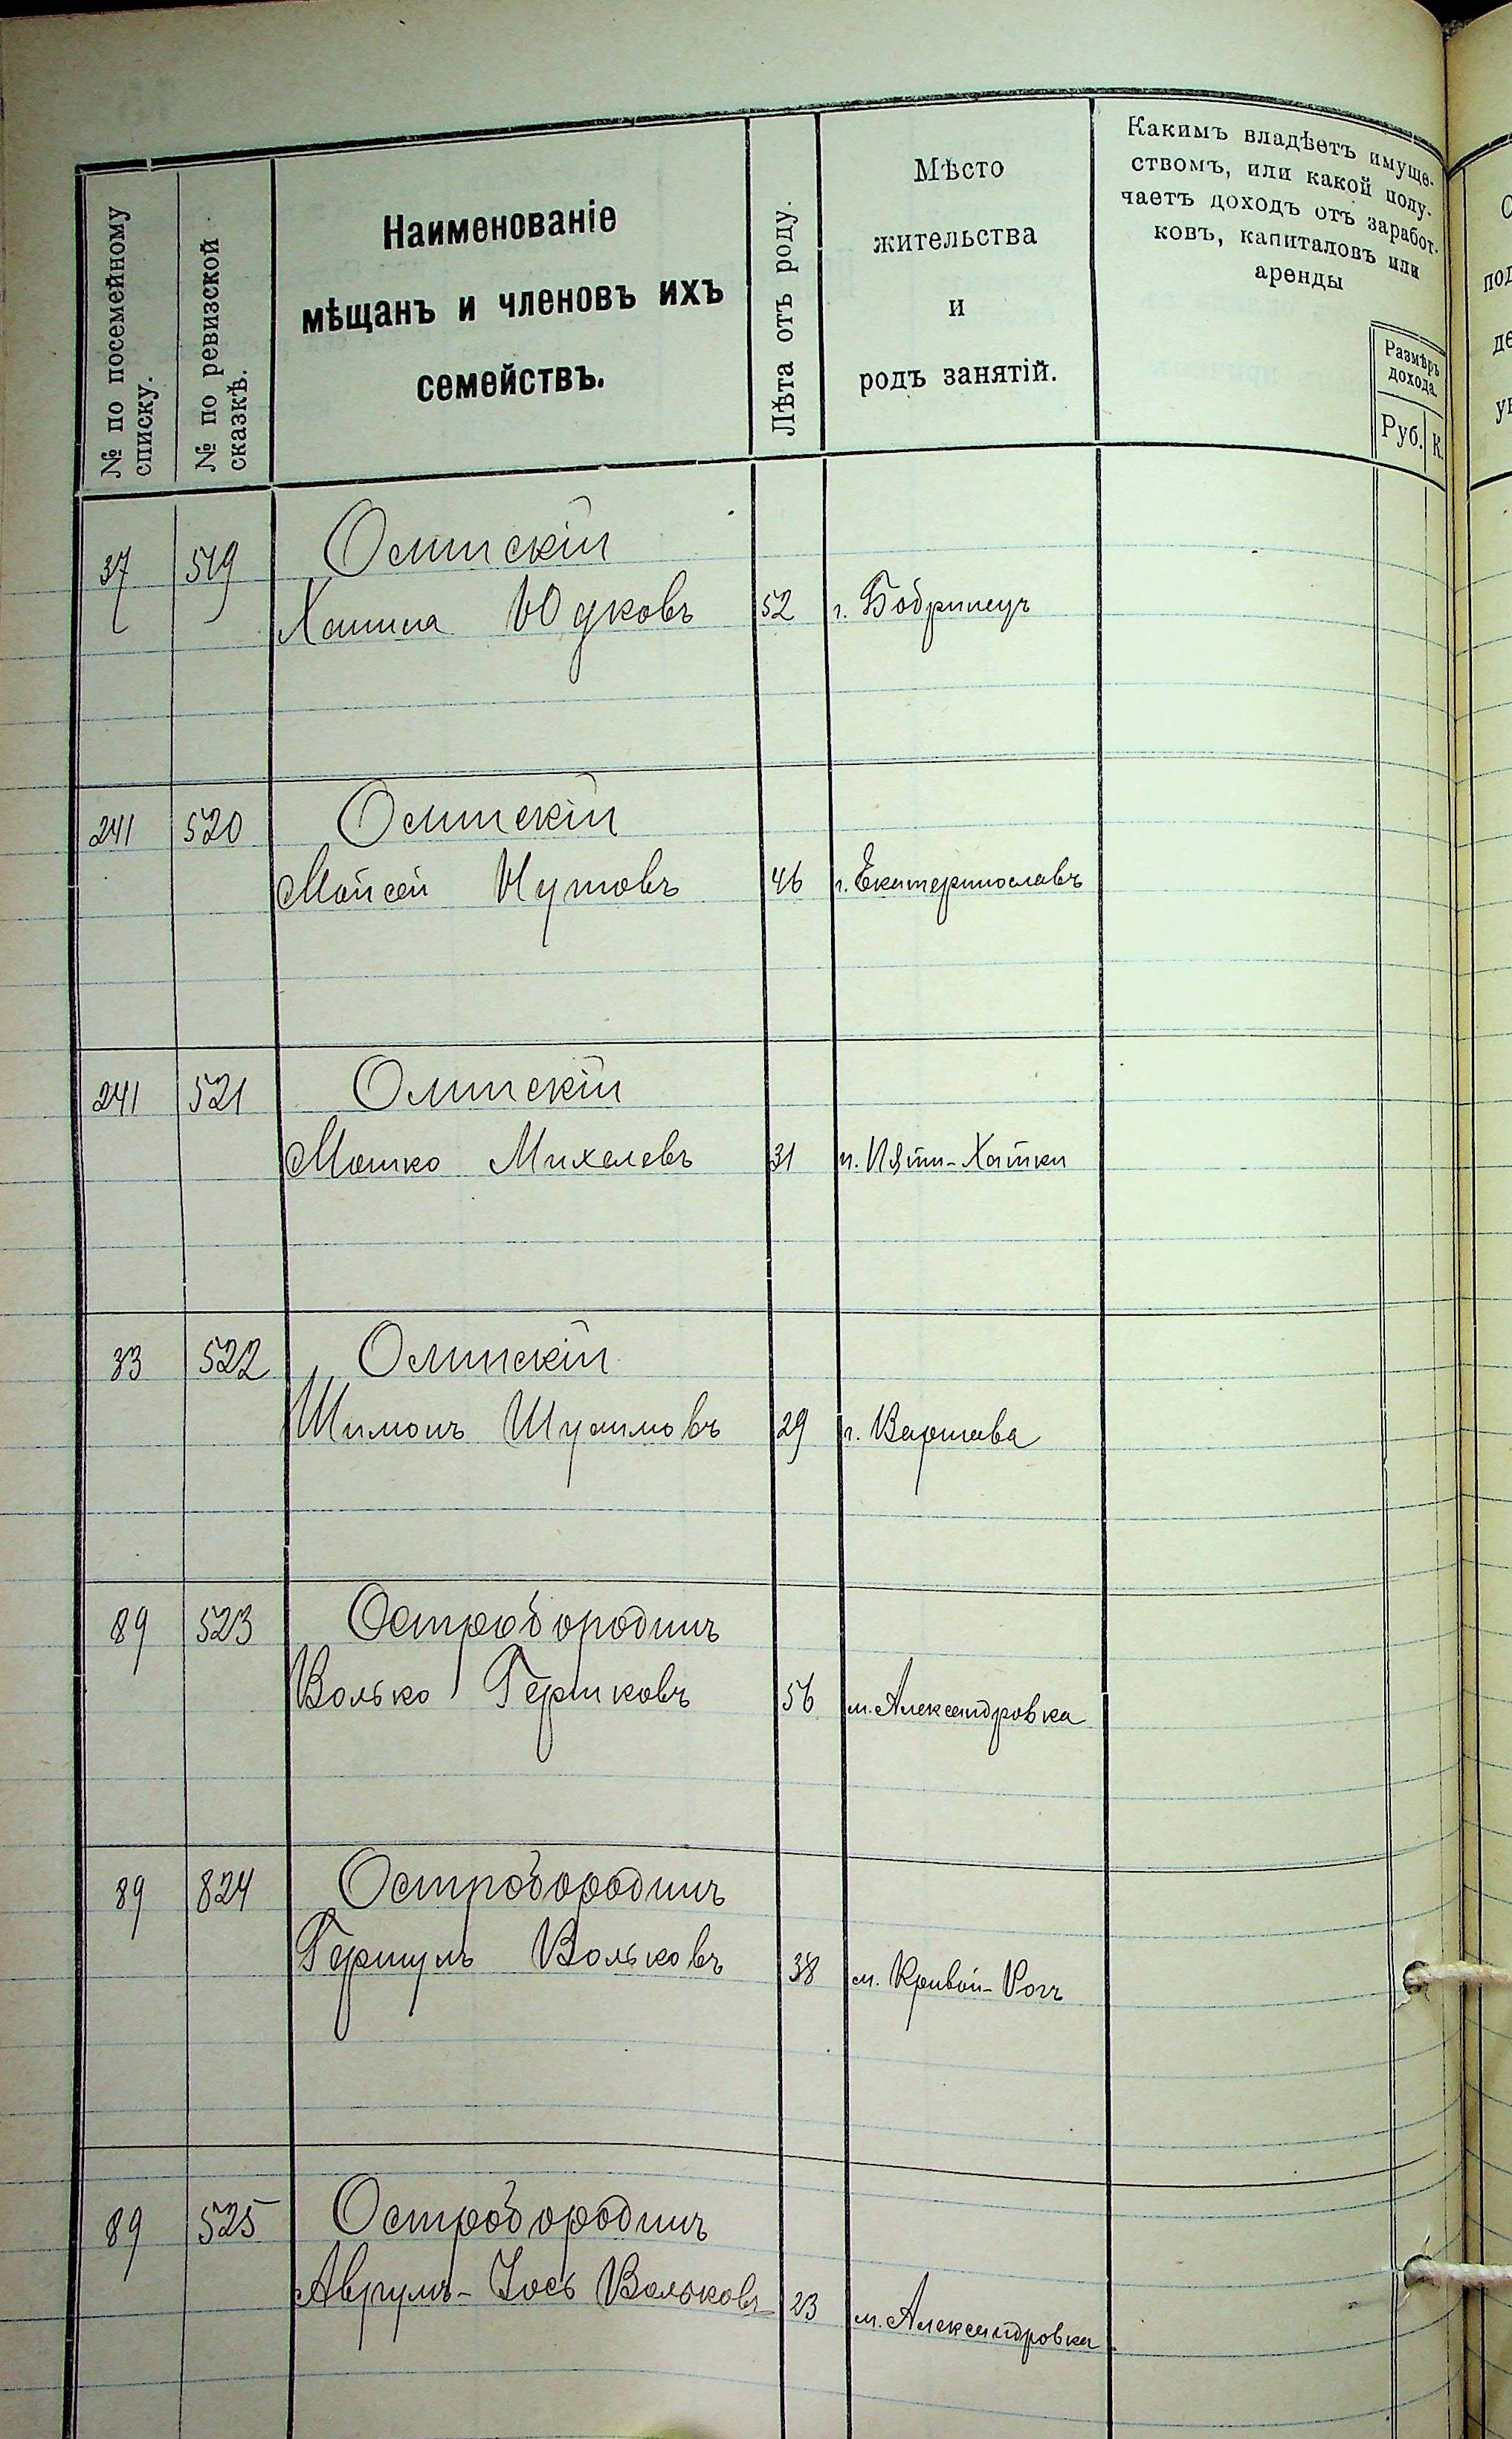 № по посемейному
списку.
№ по ревизской
сказкѣ.
Наименованіе
мѣщанъ и членовъ ихъ
семействъ.
Лѣта отъ роду.
Мѣсто
жительства
и
родъ занятій.
Какимъ владѣетъ имуще-
ствомъ, или какой полу-
чаетъ доходъ отъ заработ-
ковъ, капиталовъ или
аренды
Размѣръ
дохода.
Руб. К.
37 519 Олинскій
Ханина Юдковъ 52 г. Бобринецъ
241 520 Олинскій
Мойсей Нутовъ 46 г. Екатеринославъ
241 521 Олинскій
Мошко Михелевъ 31 п. Пяти-Хатки
33 522 Олинскій
Шимонъ Шулимовъ 29 г. Варшава
89 523 Остробородинъ
Волько Гершковъ 56 м. Александровка
89 824 Остробородинъ
Гершулъ Вольковъ 38 м. Кривой-Рогъ
89 525 Остробородинъ
Аврумъ-Іось Вольковъ 23 м. Александровка